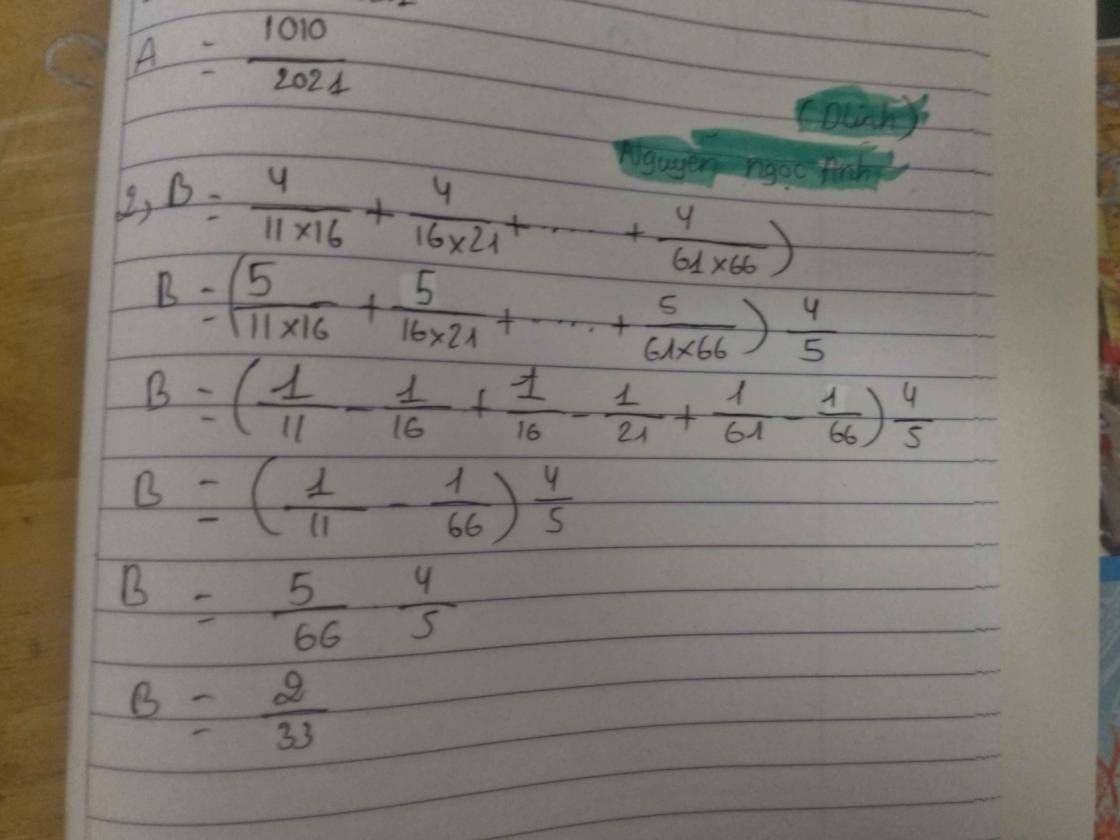 A = 1010/2021
(DLinh)
Nguyễn ngọc Anh
2, B = 4/11×16 + 4/16×21 + ..... + 4/61×66 )
B = ( 5/11×16 + 5/16×21 + ..... + 5/61×66 ) 4/5
B = ( 1/11 - 1/16 + 1/16 - 1/21 + 1/61 - 1/66 ) 4/5
B = ( 1/11 - 1/66 ) 4/5
B = 5/66 . 4/5
B = 2/33